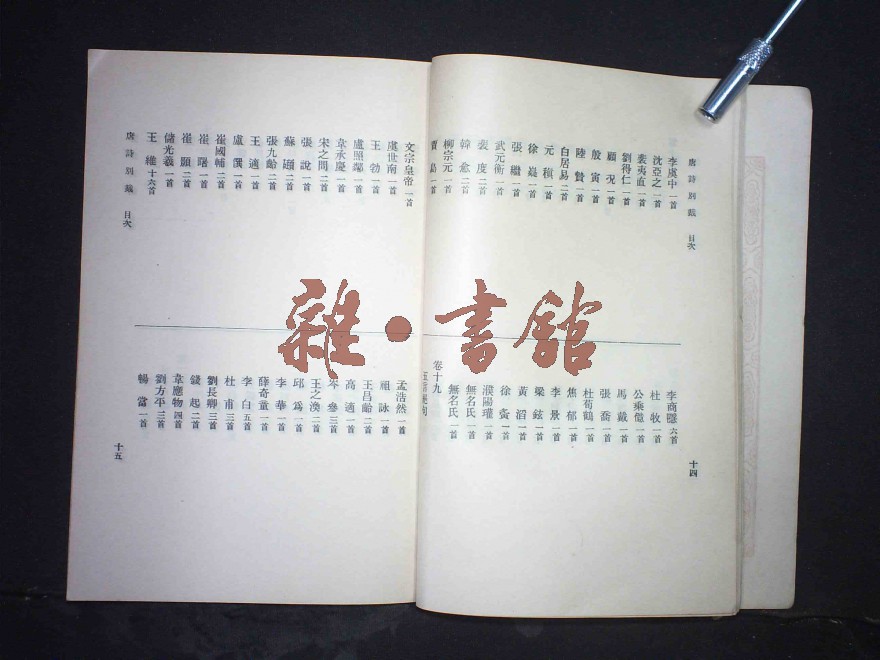 唐詩別裁 目次
李虞中一首
沈亞之一首
裴夷直一首
劉得仁一首
顧況一首
殷寅一首
陸贄一首
白居易二首
元稹一首
徐嶷一首
張繼一首
武元衡一首
裴度二首
韓愈二首
柳宗元一首
賈島一首
李商隱六首
杜牧一首
公乘億一首
馬戴一首
張喬一首
杜荀鶴一首
焦郁一首
李景一首
梁鉉一首
黃滔一首
徐夤一首
濮陽瓘一首
無名氏一首
無名氏一首
卷十九
五言絕句
十四
文宗皇帝一首
虞世南一首
王勃一首
盧照鄰一首
韋承慶一首
宋之問二首
張說一首
蘇頲二首
張九齡二首
王適一首
盧僎一首
崔國輔二首
崔曙一首
崔顥二首
儲光羲一首
王維十六首
唐詩別裁 目次
孟浩然一首
祖詠一首
王昌齡二首
高適一首
岑參三首
王之渙二首
邱爲一首
李華一首
薛奇童一首
李白五首
杜甫三首
劉長卿三首
錢起二首
韋應物四首
劉方平三首
暢當一首
十五
雜·書館